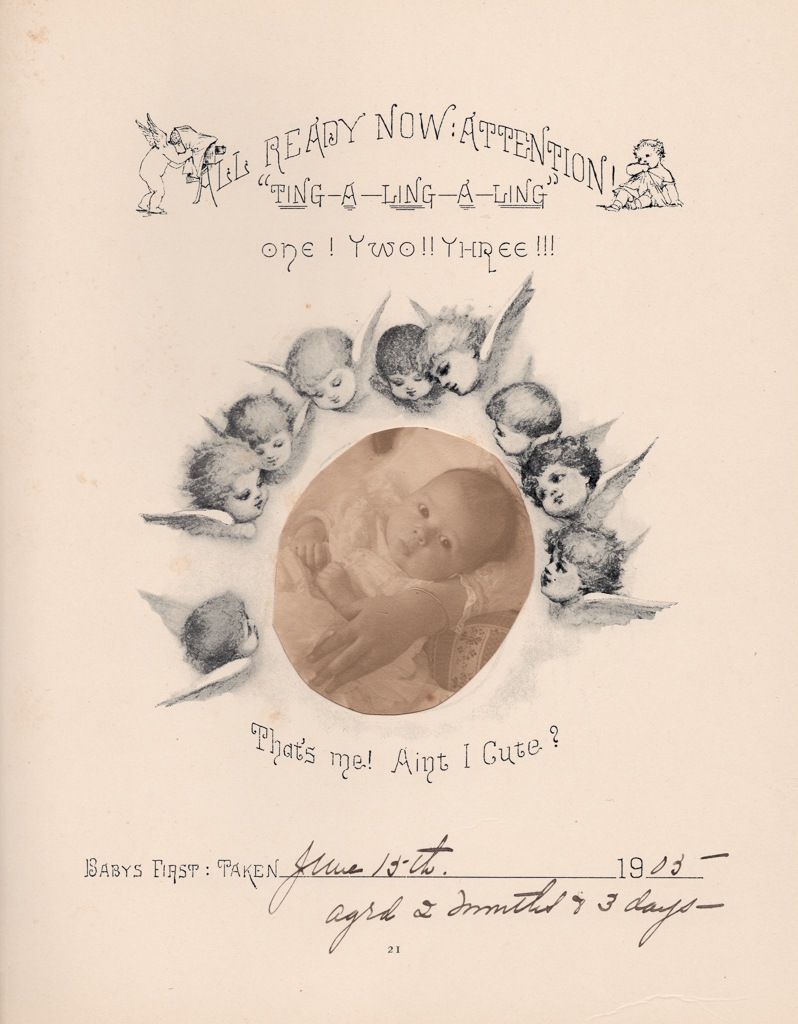 ALL READY NOW: ATTENTION!
"TING-A-LING-A-LING"
ONE! TWO!! THREE!!!
That's me! Aint I Cute?
BABYS FIRST: TAKEN June 15th. 1905-
aged 2 months & 3 days-
21